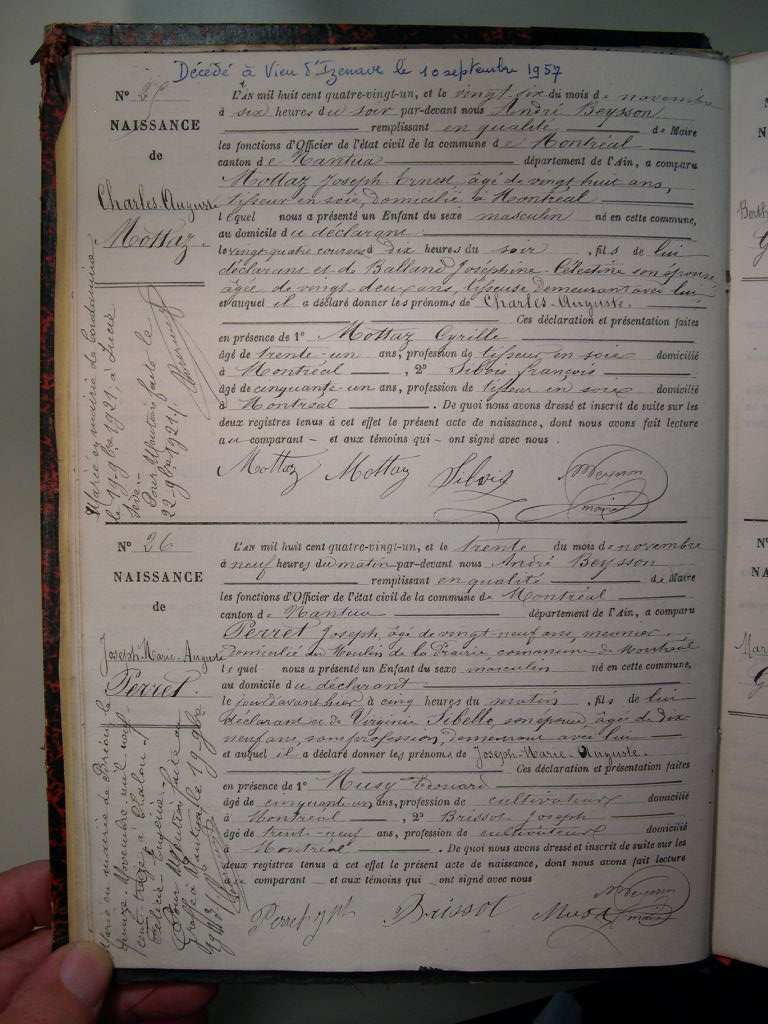 Décédé à Vieu d'Izenave le 10 septembre 1957
N° 25
NAISSANCE
de
Charles Auguste
Mottaz.
L'AN mil huit cent quatre-vingt-un, et le vingt six du mois de novembre
à six heures du soir par-devant nous André Beysson
remplissant en qualité de Maire
les fonctions d'Officier de l'état civil de la commune de Montréal
canton de Nantua département de l'Ain, a comparu
Mottaz Joseph Ernest, âgé de vingt huit ans,
tisseur en soie, domicilié à Montréal
lequel nous a présenté un Enfant du sexe masculin né en cette commune,
au domicile du déclarant
le vingt quatre courant à dix heures du soir, fils de lui
déclarant et de Balland Joséphine Célestine son épouse
âgée de vingt-deux ans, tisseuse demeurant avec lui
et auquel il a déclaré donner les prénoms de Charles-Auguste.
Ces déclaration et présentation faites
en présence de 1° Mottaz Cyrille
âgé de trente-un ans, profession de tisseur en soie domicilié
à Montréal, 2° Silvois françois
âgé de cinquante un ans, profession de tisseur en soie domicilié
à Montréal. De quoi nous avons dressé et inscrit de suite sur les
deux registres tenus à cet effet le présent acte de naissance, dont nous avons fait lecture
au comparant et aux témoins qui ont signé avec nous.
Mottaz Mottaz maire
Marié en mairie de
le 19 9bre 1921, à Lucie
Pour Mention faite le
22 9bre 1921
N° 26
NAISSANCE
de
Joseph-Marie-Auguste
Perret.
L'AN mil huit cent quatre-vingt-un, et le trente du mois de novembre
à neuf heures du matin par-devant nous André Beysson
remplissant en qualité de Maire
les fonctions d'Officier de l'état civil de la commune de Montréal
canton de Nantua département de l'Ain, a comparu
Perret Joseph, âgé de vingt-neuf ans, meunier
domicilié au Moulin de la Prairie commune de Montréal
lequel nous a présenté un Enfant du sexe masculin né en cette commune,
au domicile du déclarant
le jour d'avant hier à cinq heures du matin, fils de lui
déclarant et de Virginie Sibelle, son épouse, âgée de dix
neuf ans, sans profession, demeurant avec lui
et auquel il a déclaré donner les prénoms de Joseph-Marie-Auguste.
Ces déclaration et présentation faites
en présence de 1° Musy Edouard
âgé de cinquante un ans, profession de cultivateur domicilié
à Montréal, 2° Brissot Joseph
âgé de trente-neuf ans, profession de cultivateur domicilié
à Montréal. De quoi nous avons dressé et inscrit de suite sur les
deux registres tenus à cet effet le présent acte de naissance, dont nous avons fait lecture
au comparant et aux témoins qui ont signé avec nous
Perret Jph Brissot Musy maire
Marié en mairie de
quinze Novembre mil neuf
cent treize à Chalon
Félicie Eugénie
Pour Mention faite au
Greffe à Nantua le 19 9bre